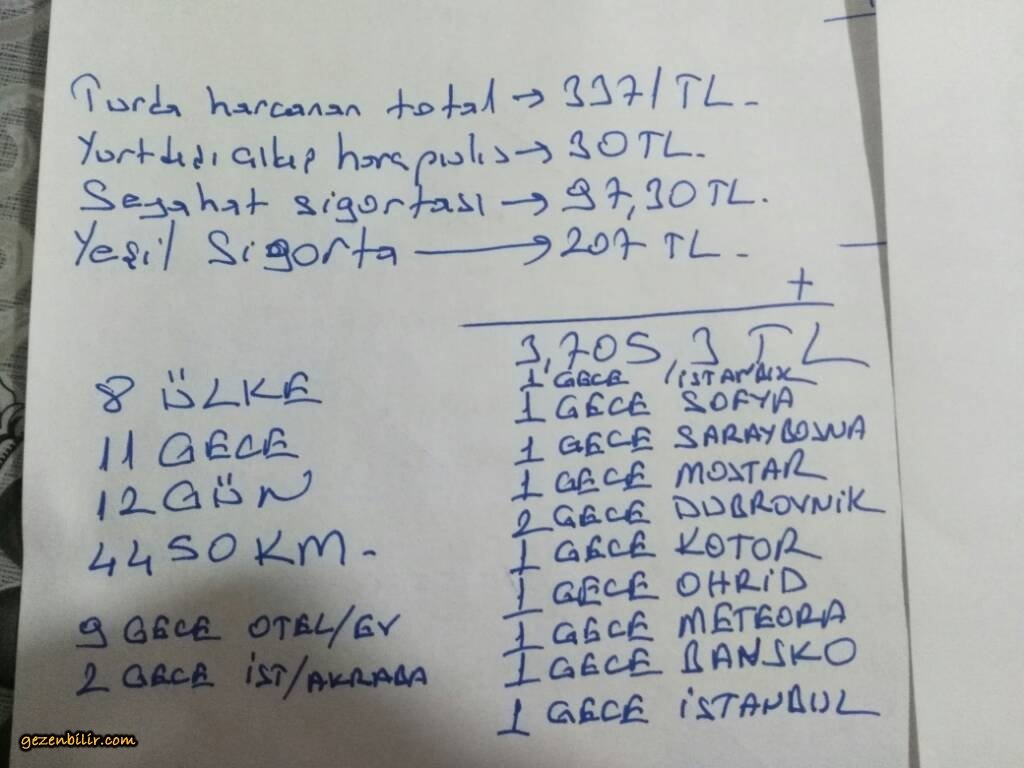 Turda harcanan total → 3371 TL.
Yurtdışı çıkış harç pulu → 30 TL.
Seyahat sigortası → 97,30 TL.
Yeşil Sigorta → 207 TL.
+
3,705,3 TL
8 ÜLKE
11 GECE
12 GÜN
4450 KM.
9 GECE OTEL/EV
2 GECE İST/AKRABA
1 GECE /İSTANBUL
1 GECE SOFYA
1 GECE SARAYBOSNA
1 GECE MOSTAR
2 GECE DUBROVNİK
1 GECE KOTOR
1 GECE OHRİD
1 GECE METEORA
1 GECE BANSKO
1 GECE İSTANBUL
gezenbilir.com